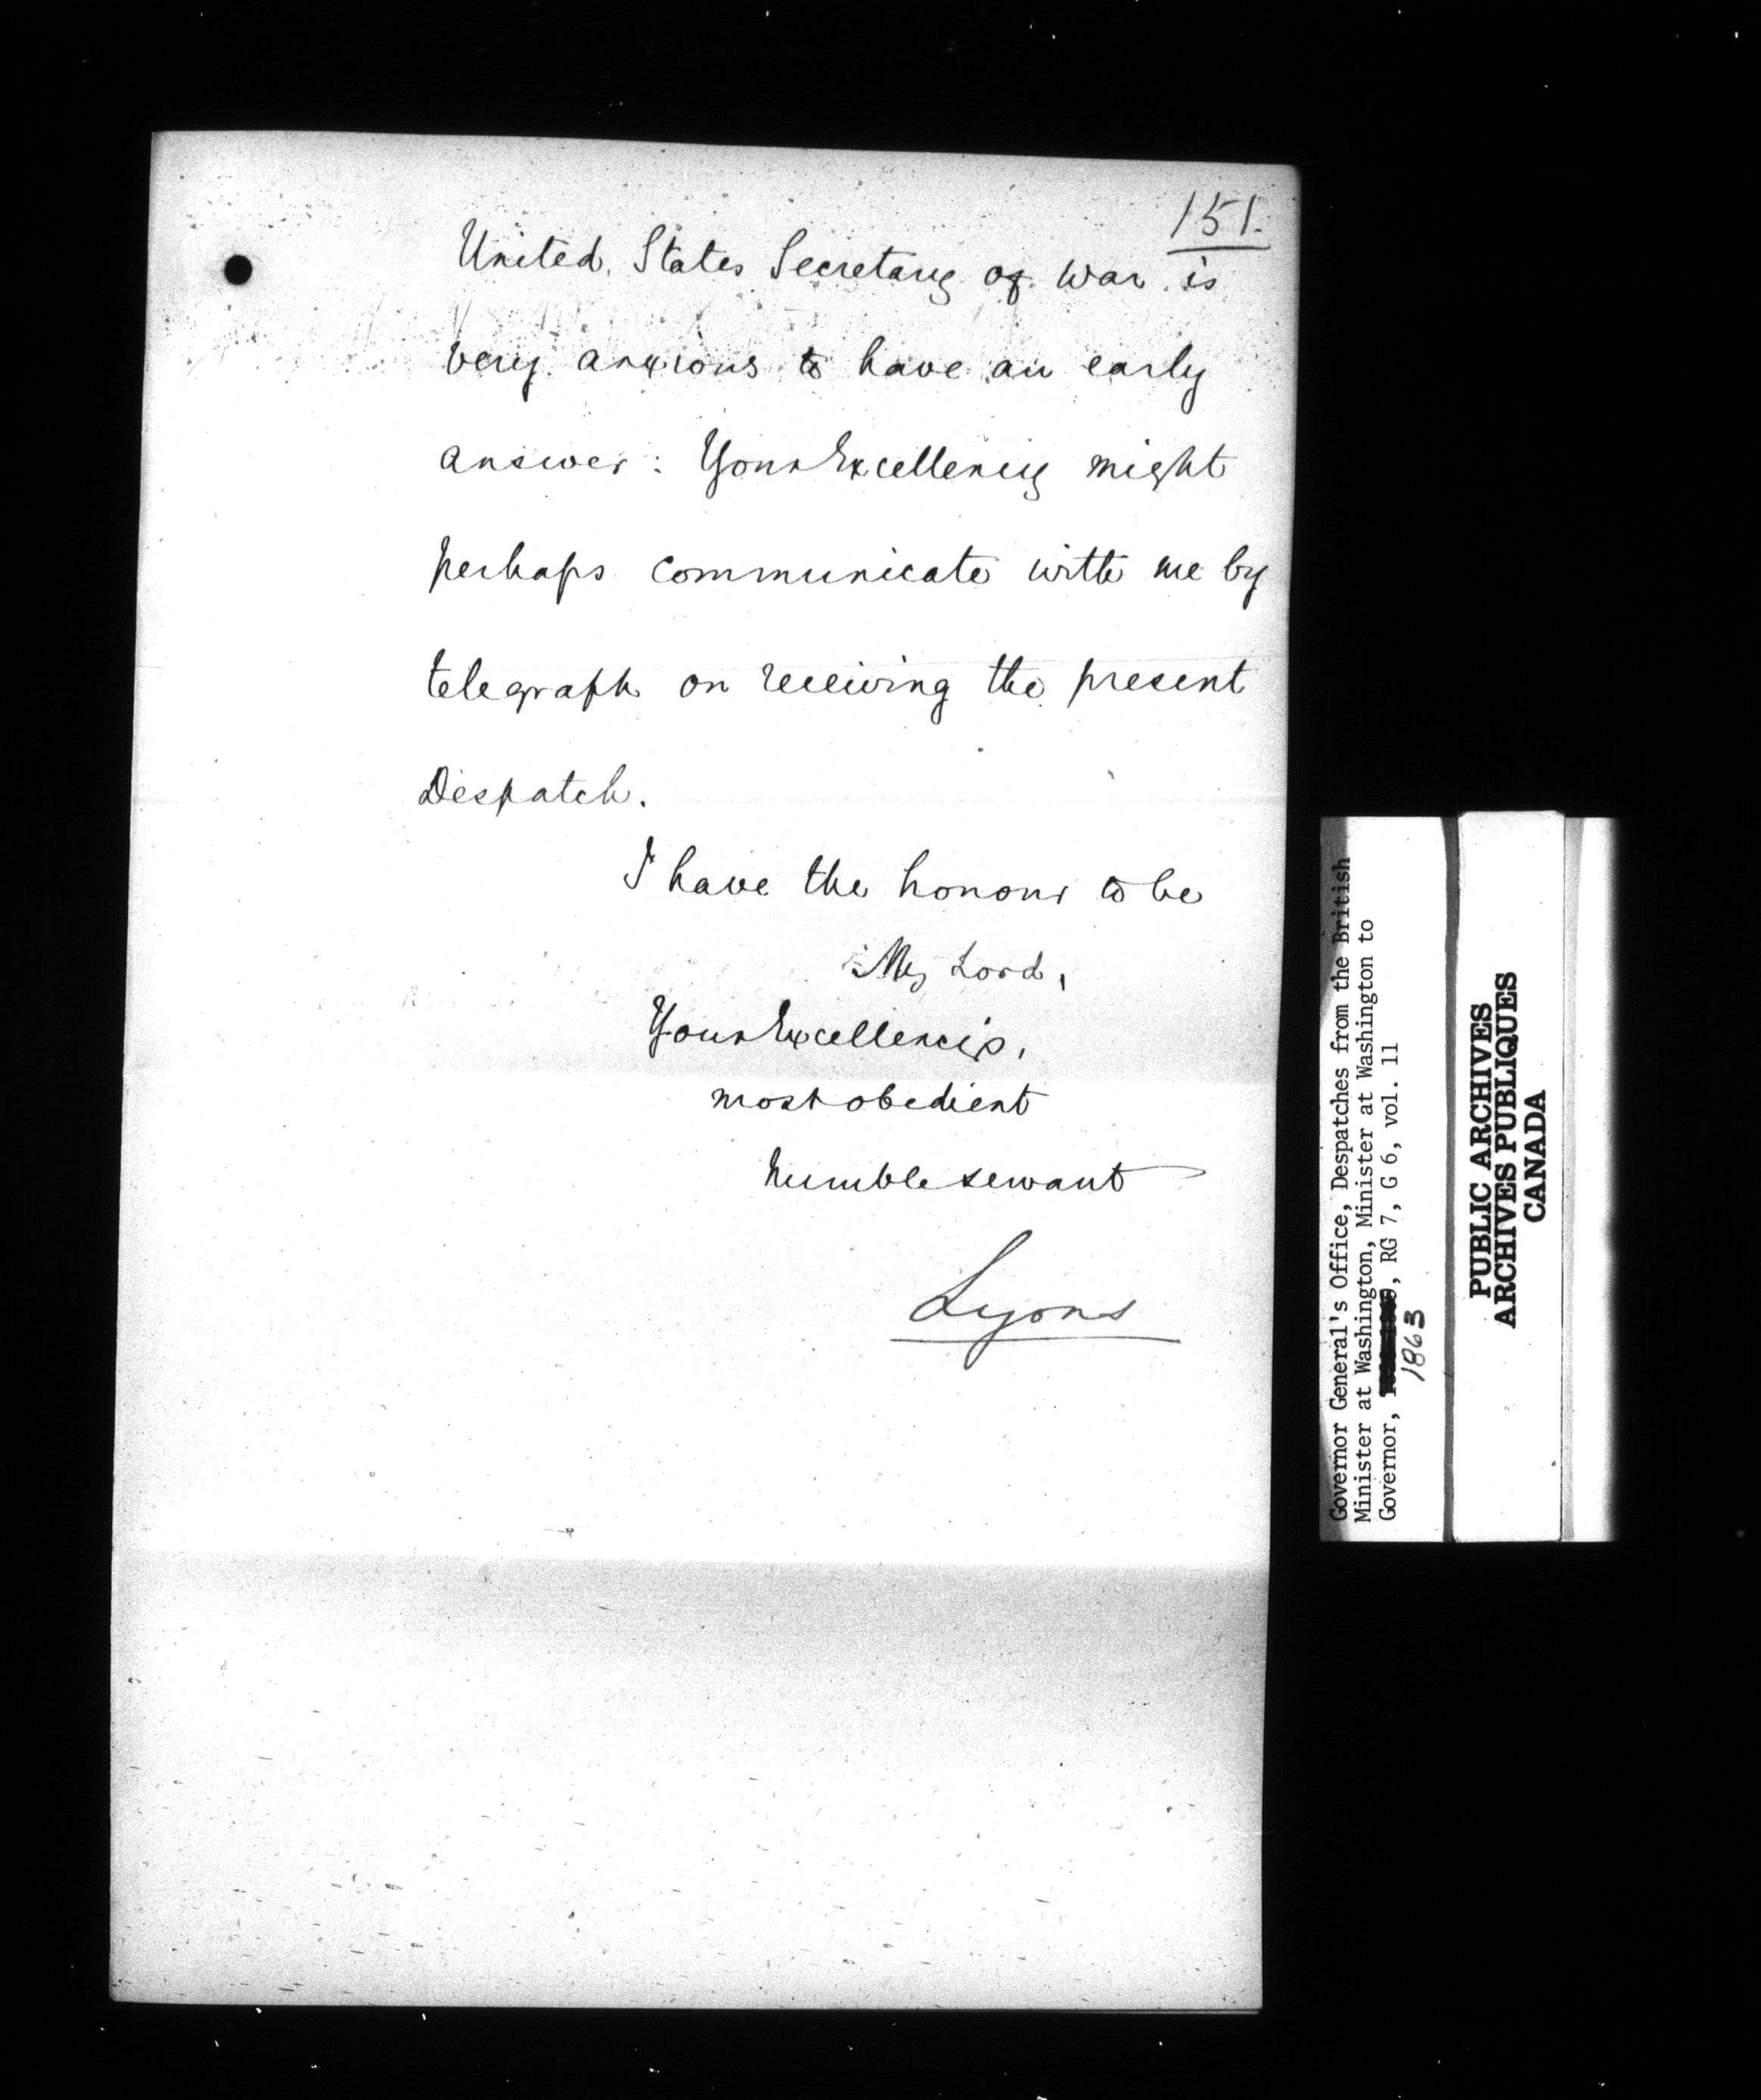 151.
United States Secretary of War is
very anxious to have an early
answer: Your Excellency might
perhaps communicate with me by
telegraph on receiving the present
Despatch.
I have the honour to be
My Lord,
Your Excellency's,
most obedient
humble servant
Lyons
Governor General's Office, Despatches from the British
Minister at Washington, Minister at Washington to
Governor, , RG 7, G 6, vol. 11
1863
PUBLIC ARCHIVES
ARCHIVES PUBLIQUES
CANADA